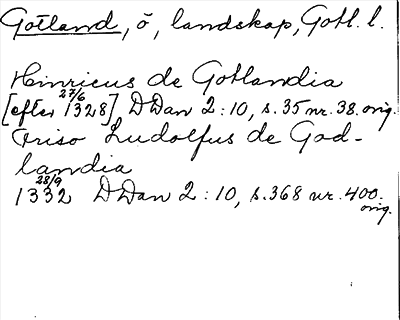 Gotland, ö, landskap, Gotl. l.
Hinricus de Gotlandia
[efter 27/6 1328] DDan 2:10, s.35 nr. 38. orig.
Friso Ludolfus de God-
landia
28/9 1332 DDan 2:10, s.368 nr. 400. orig.